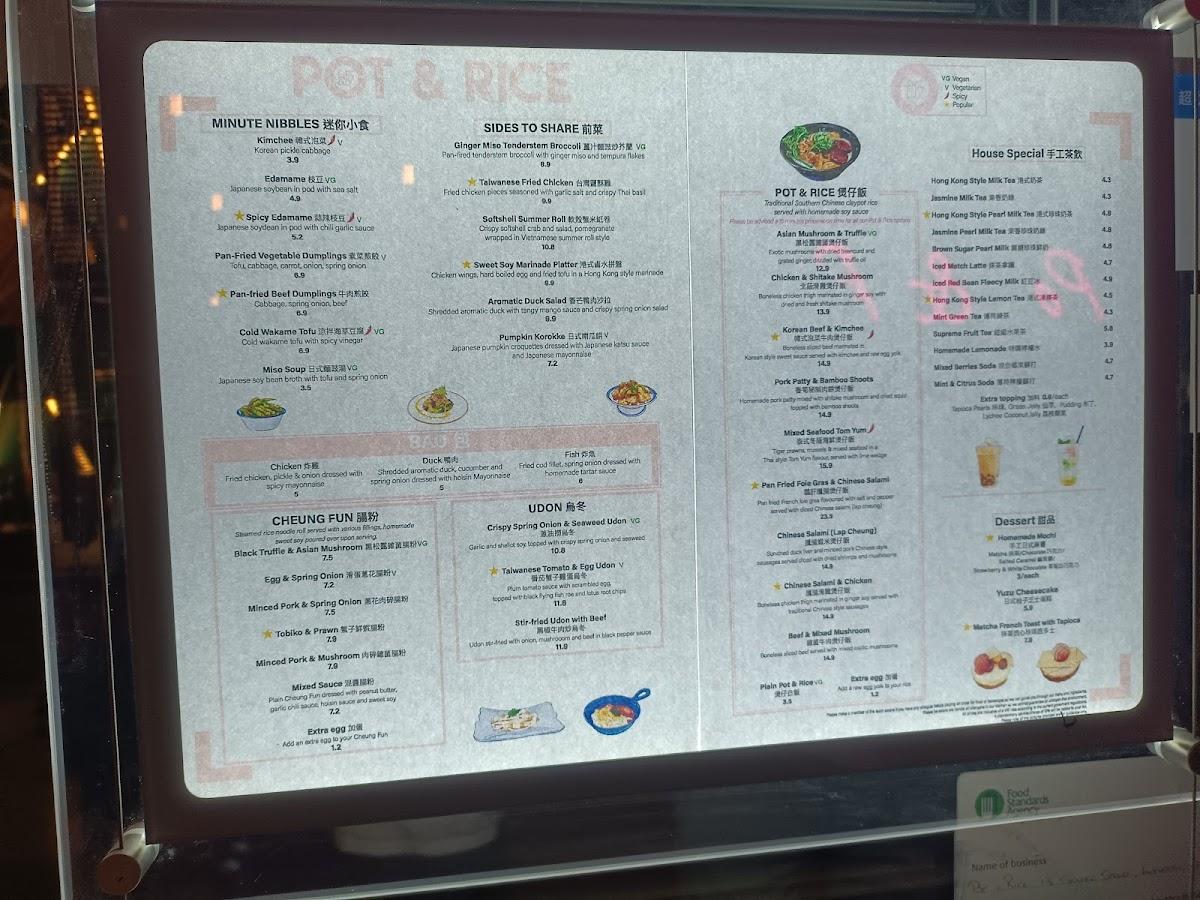 POT & RICE
MINUTE NIBBLES 迷你小食
Kimchee 韓式泡菜 V
Korean pickle cabbage
3.9
Edamame 枝豆 VG
Japanese soybean in pod with sea salt
4.9
Spicy Edamame 蒜辣枝豆 V
Japanese soydean in pod with chili garlic sauce
5.2
Pan-Fried Vegetable Dumplings 素菜煎餃 V
Tofu, cabbage, carrot, onion, spring onion
6.9
Pan-fried Beef Dumplings 牛肉煎餃
Cabbage, spring onion, beef
6.9
Cold Wakame Tofu 涼拌海草豆腐 VG
Cold wakame tofu with spicy vinegar
6.9
Miso Soup 日式麵豉湯 VG
Japanese soy bean broth with tofu and spring onion
3.5
SIDES TO SHARE 前菜
Ginger Miso Tenderstem Broccoli 薑汁麵豉炒芥蘭 VG
Pan-fired tenderstem broccoli with ginger miso and tempura flakes
8.9
Taiwanese Fried Chicken 台灣鹽酥雞
Fried chicken pieces seasoned with garlic salt and crispy Thai basil
9.9
Softshell Summer Roll 軟殼蟹米紙卷
Crispy softshell crab and salad, pomegranate
wrapped in Vietnamese summer roll style
10.8
Sweet Soy Marinade Platter 港式鹵水拼盤
Chicken wings, hard boiled egg and fried tofu in a Hong Kong style marinade
9.9
Aromatic Duck Salad 香芒鴨肉沙拉
Shredded aromatic duck with tangy mango sauce and crispy spring onion salad
9.9
Pumpkin Korokke 日式南瓜餅 V
Japanese pumpkin croquettes dressed with Japanese katsu sauce
and Japanese mayonnaise
7.2
BAO 包
Chicken 炸雞
Fried chicken, pickle & onion dressed with
spicy mayonnaise
5
Duck 鴨肉
Shredded aromatic duck, cucumber and
spring onion dressed with hoisin Mayonnaise
5
Fish 炸魚
Fried cod fillet, spring onion dressed with
homemade tartar sauce
6
CHEUNG FUN 腸粉
Steamed rice noodle roll served with various fillings, homemade
sweet soy poured over upon serving.
Black Truffle & Asian Mushroom 黑松露雜菌腸粉VG
7.5
Egg & Spring Onion 滑蛋蔥花腸粉V
7.2
Minced Pork & Spring Onion 蔥花肉碎腸粉
7.5
Tobiko & Prawn 蟹子鮮蝦腸粉
7.9
Minced Pork & Mushroom 肉碎雜菌腸粉
7.9
Mixed Sauce 混醬腸粉
Plain Cheung Fun dressed with peanut butter,
garlic chili sauce, hoisin sauce and sweet soy
7.2
Extra egg 加蛋
Add an extra egg to your Cheung Fun
1.2
UDON 烏冬
Crispy Spring Onion & Seaweed Udon VG
蔥油撈烏冬
Garlic and shallot soy, topped with crispy spring onion and seaweed
10.8
Taiwanese Tomato & Egg Udon V
番茄蟹子雞蛋烏冬
Plum tomato sauce with scrambled egg,
topped with black flying fish roe and lotus root chips
11.8
Stir-fried Udon with Beef
黑椒牛肉炒烏冬
Udon stir-fried with onion, mushroom and beef in black pepper sauce
11.9
VG Vegan
V Vegetarian
Spicy
Popular
POT & RICE 煲仔飯
Traditional Southern Chinese claypot rice
served with homemade soy sauce
Asian Mushroom & Truffle VG
黑松露雜菌煲仔飯
Exotic mushrooms with dried beancurd and
grated ginger, drizzled with truffle oil
12.9
Chicken & Shitake Mushroom
北菇滑雞煲仔飯
Boneless chicken thigh marinated in ginger soy with
dried and fresh shitake mushroom
13.9
Korean Beef & Kimchee
韓式泡菜牛肉煲仔飯
Boneless sliced beef marinated in
Korean style sweet sauce served with kimchee and raw egg yolk
14.9
Pork Patty & Bamboo Shoots
Homemade pork patty mixed with shitake mushroom and dried squid
topped with bamboo shoots
14.9
Mixed Seafood Tom Yum
泰式冬蔭海鮮煲仔飯
Tiger prawns, mussels & mixed seafood in a
Thai style Tom Yum flavour, served with lime wedge
15.9
Pan Fried Foie Gras & Chinese Salami
Pan fried French foie gras flavoured with salt and pepper
served with diced Chinese salami (lap cheung)
23.9
Chinese Salami (Lap Cheung)
Sundried duck liver and minced pork Chinese style
sausages served diced with dried shrimps and mushrooms
14.9
Chinese Salami & Chicken
臘腸滑雞煲仔飯
Boneless chicken thigh marinated in ginger soy served with
traditional Chinese style sausages
14.9
Beef & Mixed Mushroom
雜菌牛肉煲仔飯
Boneless sliced beef served with mixed exotic mushrooms
14.9
Plain Pot & Rice VG
煲仔白飯
3.5
Extra egg 加蛋
Add a raw egg yolk to your rice
1.2
House Special 手工茶飲
Hong Kong Style Milk Tea 港式奶茶 4.3
Jasmine Milk Tea 茉香奶綠 4.3
Hong Kong Style Pearl Milk Tea 港式珍珠奶茶 4.8
Jasmine Pearl Milk Tea 茉香珍珠奶綠 4.8
Brown Sugar Pearl Milk 黑糖珍珠鮮奶 4.8
Iced Match Latte 抹茶拿鐵 4.7
Iced Red Bean Fleecy Milk 紅豆冰 4.9
Hong Kong Style Lemon Tea 港式凍檸茶 4.5
Mint Green Tea 薄荷綠茶 4.3
Supreme Fruit Tea 超級水果茶 5.8
Homemade Lemonade 特調檸檬水 3.9
Mixed Berries Soda 混合莓果蘇打 4.7
Mint & Citrus Soda 薄荷檸檬蘇打 4.7
Extra topping 加料 0.8/each
Tapioca Pearls 珍珠, Grass Jelly 仙草, Pudding 布丁,
Lychee Coconut Jelly
Dessert 甜品
Homemade Mochi
手工日式麻薯
Salted Caramel
Strawberry & White Chocolate
3/each
Yuzu Cheesecake
日式柚子芝士蛋糕
5.9
Matcha French Toast with Tapioca
7.9
超
Food
Standards
Agency
Name of business